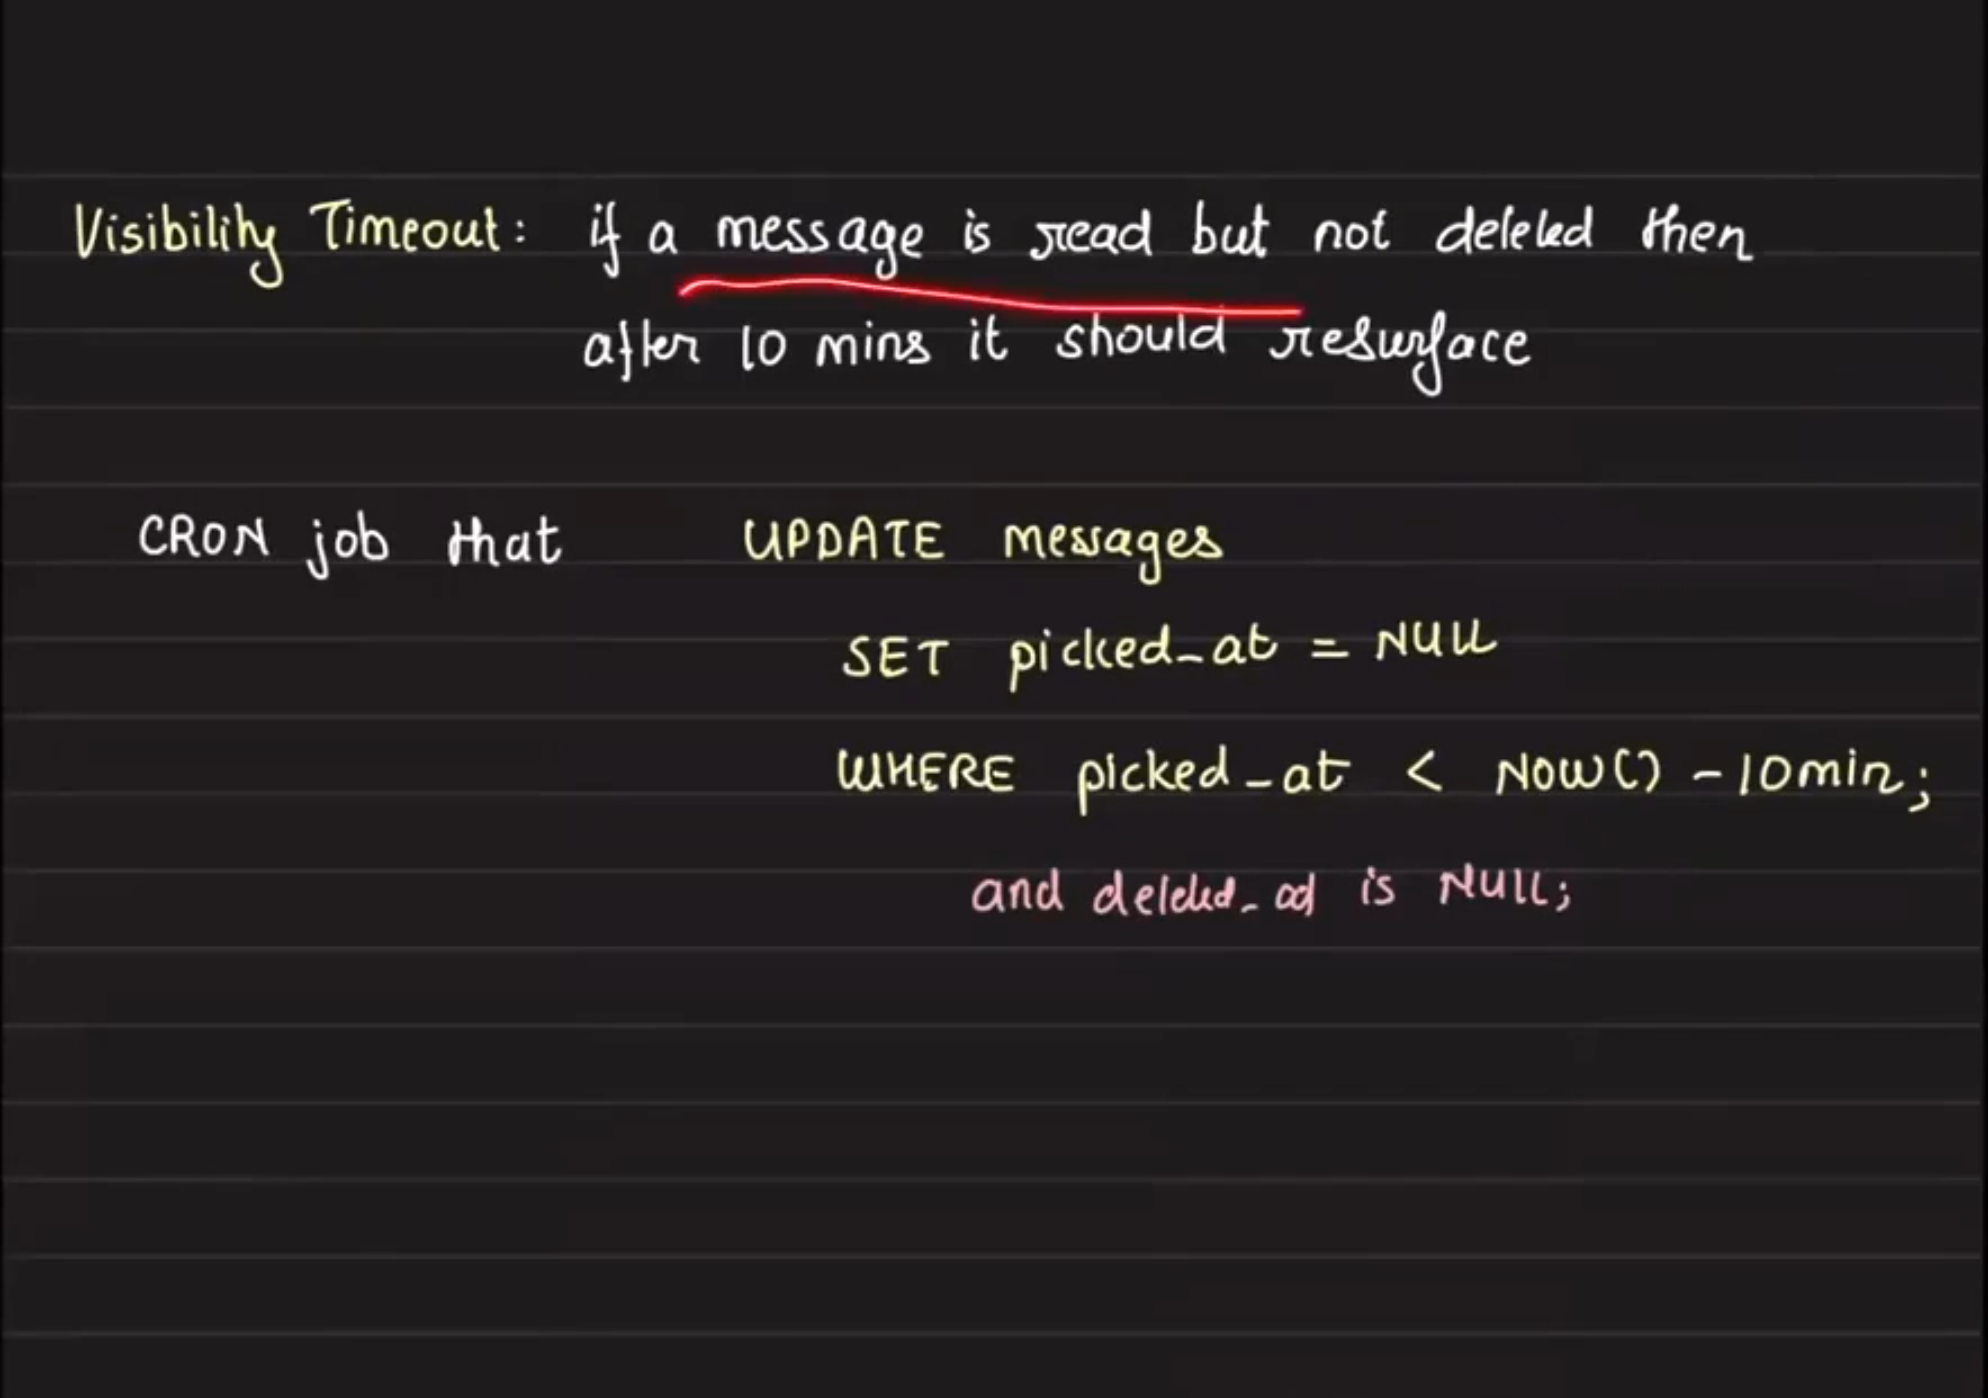 Visibility Timeout: if a message is read but not deleted then
after 10 mins it should resurface
CRON job that UPDATE messages
SET picked_at = NULL
WHERE picked_at < NOW() - 10min;
and deleted_at is NULL;